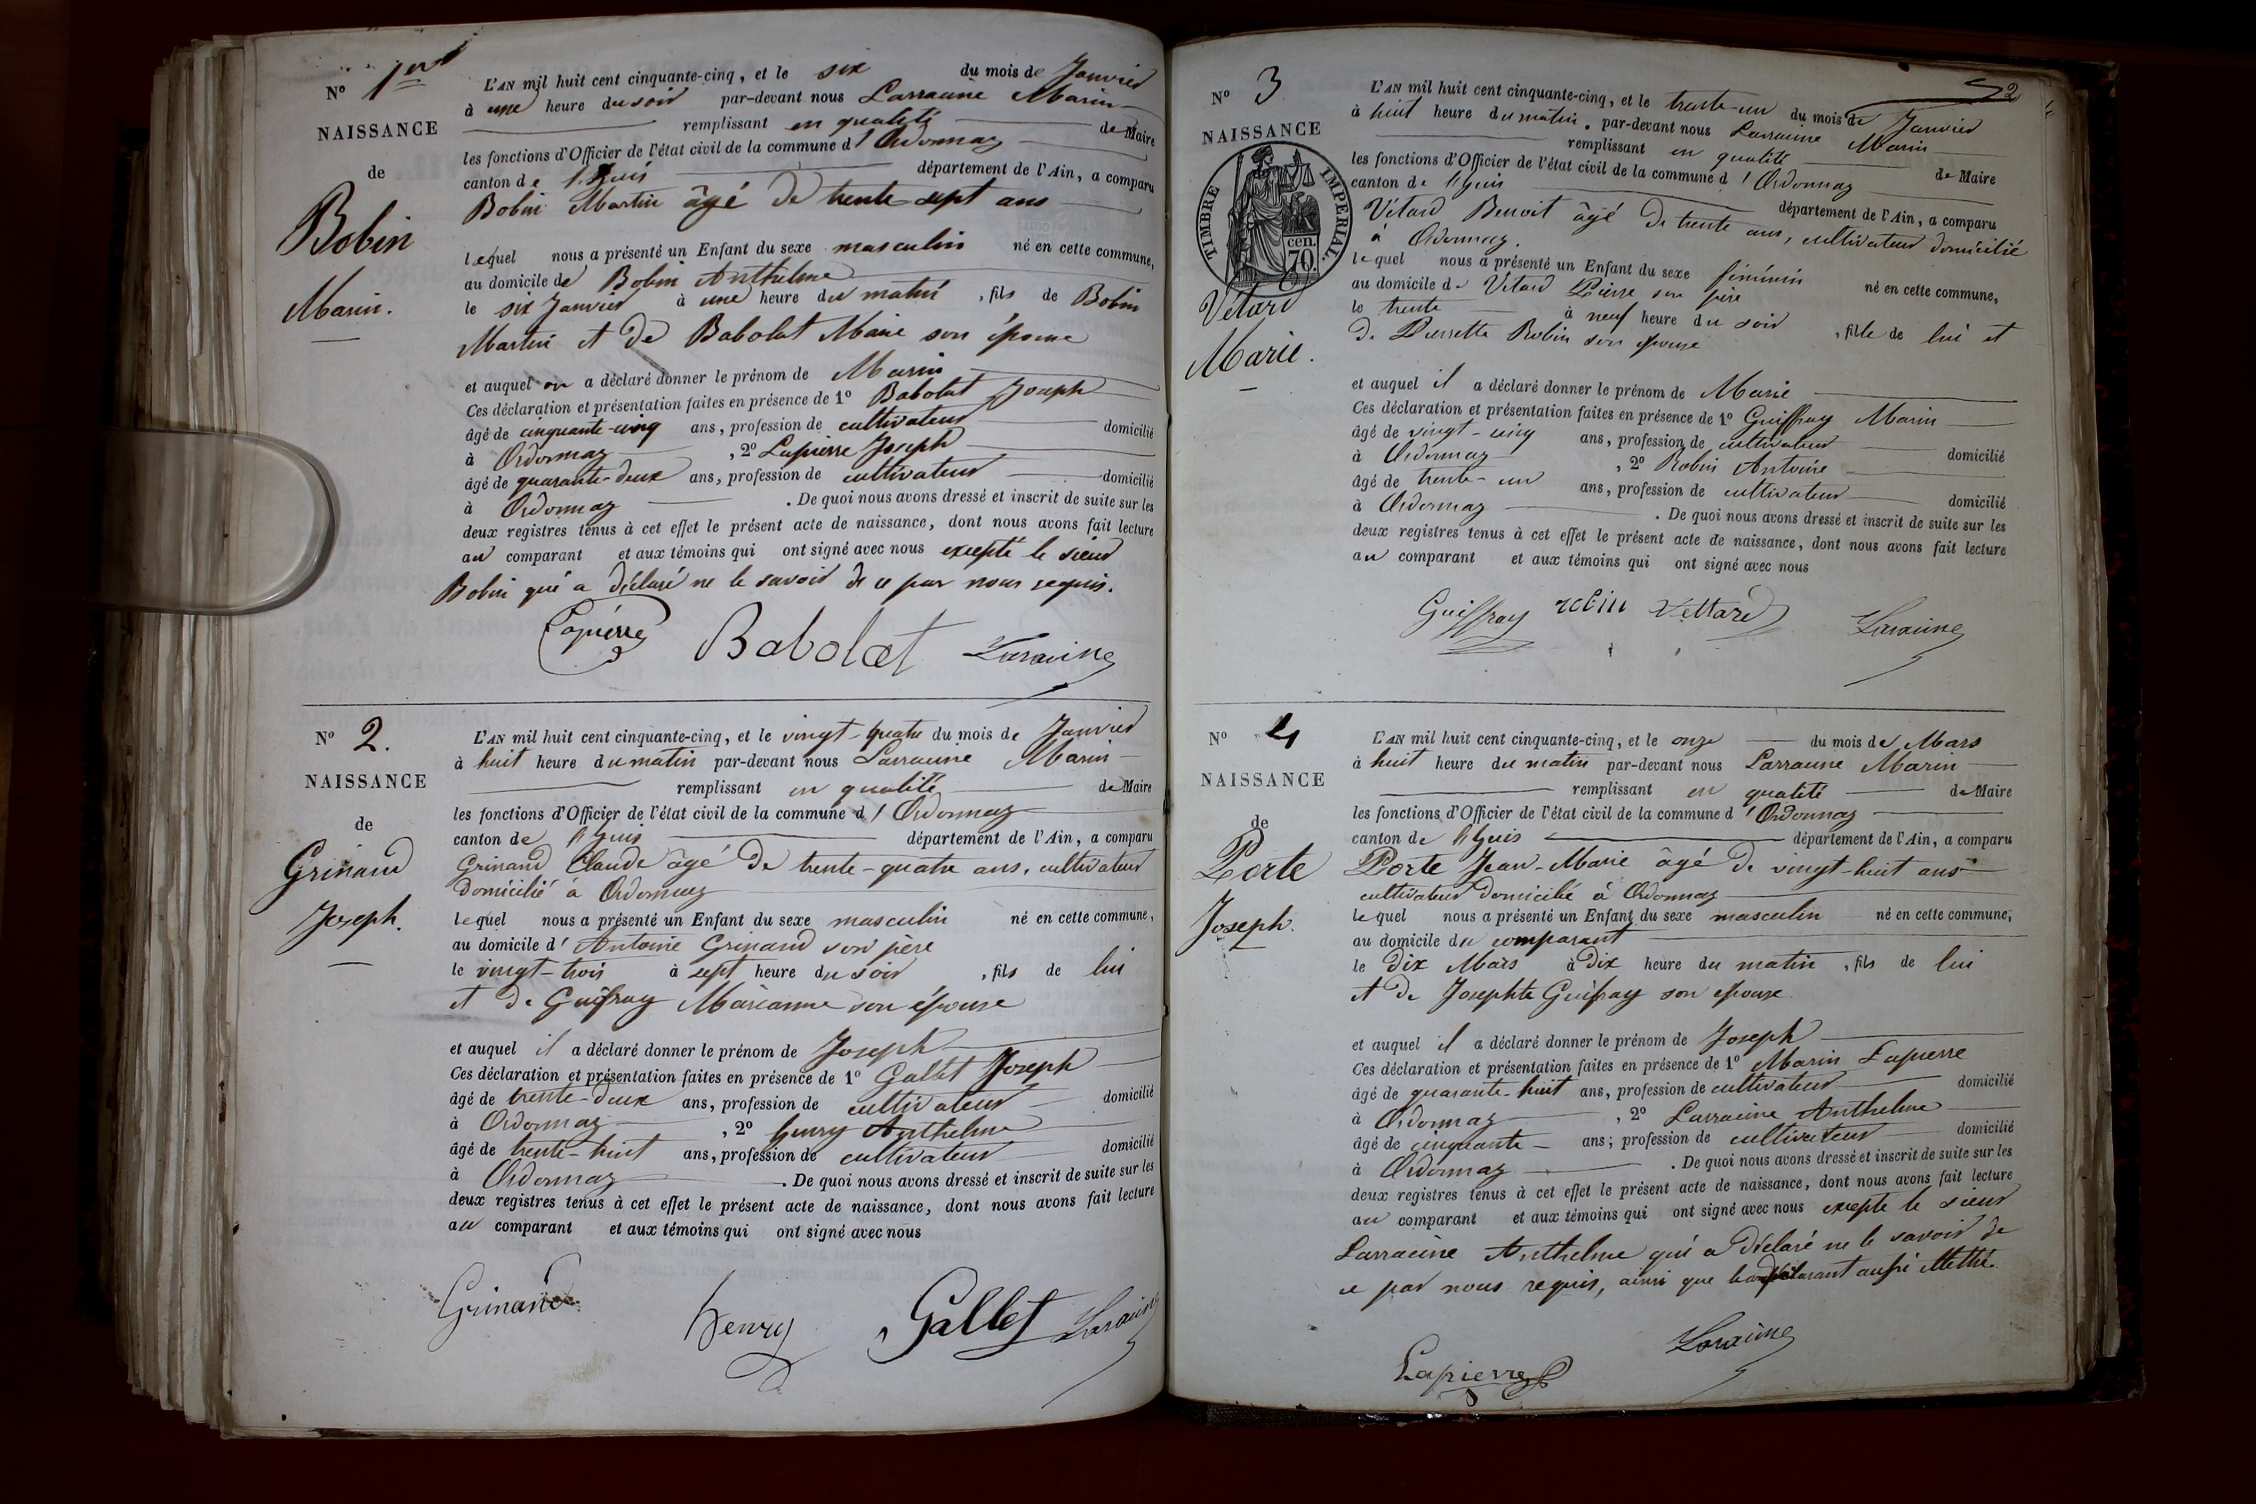 N° 1er
NAISSANCE
de
Bobin
Marin.
L'AN mil huit cent cinquante-cinq, et le six du mois de Janvier
à une heure du soir par-devant nous Larracine Marin
remplissant en qualité de Maire
les fonctions d'Officier de l'état civil de la commune d'Ordonnaz
canton de lhuis département de l'Ain, a comparu
Bobin Martin âgé de trente sept ans
lequel nous a présenté un Enfant du sexe masculin né en cette commune,
au domicile de Bobin Anthelme
le six Janvier à une heure du matin, fils de Bobin
Martin et de Babolat Marie son épouse
et auquel on a déclaré donner le prénom de Marin
Ces déclaration et présentation faites en présence de 1° Babolat Joseph
âgé de cinquante-cinq ans, profession de cultivateur domicilié
à Ordonnaz, 2° Lapierre Joseph
âgé de quarante-deux ans, profession de cultivateur domicilié
à Ordonnaz. De quoi nous avons dressé et inscrit de suite sur les
deux registres tenus à cet effet le présent acte de naissance, dont nous avons fait lecture
au comparant et aux témoins qui ont signé avec nous excepté le sieur
Bobin qui a déclaré ne le savoir de ce par nous requis.
Lapierre Babolat Laracine
N° 2.
NAISSANCE
de
Grinand
Joseph.
L'AN mil huit cent cinquante-cinq, et le vingt-quatre du mois de Janvier
à huit heure du matin par-devant nous Larracine Marin
remplissant en qualité de Maire
les fonctions d'Officier de l'état civil de la commune d'Ordonnaz
canton de lhuis département de l'Ain, a comparu
Grinand Claude âgé de trente-quatre ans, cultivateur
domicilié à Ordonnaz
lequel nous a présenté un Enfant du sexe masculin né en cette commune,
au domicile d'Antoine Grinand son père
le vingt-trois à sept heure du soir, fils de lui
et de Guiffray Marianne son épouse
et auquel il a déclaré donner le prénom de Joseph
Ces déclaration et présentation faites en présence de 1° Gallet Joseph
âgé de trente-deux ans, profession de cultivateur domicilié
à Ordonnaz, 2° henry Anthelme
âgé de trente-huit ans, profession de cultivateur domicilié
à Ordonnaz. De quoi nous avons dressé et inscrit de suite sur les
deux registres tenus à cet effet le présent acte de naissance, dont nous avons fait lecture
au comparant et aux témoins qui ont signé avec nous
Grinand henry Gallet Laracine
2
N° 3
NAISSANCE
TIMBRE IMPERIAL.
cen.
70.
Vétard
Marie.
L'AN mil huit cent cinquante-cinq, et le trente-un du mois de Janvier
à huit heure du matin. par-devant nous Larracine Marin
remplissant en qualité de Maire
les fonctions d'Officier de l'état civil de la commune d'Ordonnaz
canton de lhuis département de l'Ain, a comparu
Vétard Benoit âgé de trente ans, cultivateur domicilié
à Ordonnaz.
lequel nous a présenté un Enfant du sexe féminin né en cette commune,
au domicile de Vétard Pierre son père
le trente à neuf heure du soir, fille de lui et
de Pierrette Robin son épouse
et auquel il a déclaré donner le prénom de Marie
Ces déclaration et présentation faites en présence de 1° Guiffray Marin
âgé de vingt-cinq ans, profession de cultivateur domicilié
à Ordonnaz, 2° Robin Antoine
âgé de trente-un ans, profession de cultivateur domicilié
à Ordonnaz. De quoi nous avons dressé et inscrit de suite sur les
deux registres tenus à cet effet le présent acte de naissance, dont nous avons fait lecture
au comparant et aux témoins qui ont signé avec nous
Guiffray robin Vettard Laracine
N° 4
NAISSANCE
de
Porte
Joseph.
L'AN mil huit cent cinquante-cinq, et le onze du mois de Mars
à huit heure du matin par-devant nous Larracine Marin
remplissant en qualité de Maire
les fonctions d'Officier de l'état civil de la commune d'Ordonnaz
canton de lhuis département de l'Ain, a comparu
Porte Jean-Marie âgé de vingt-huit ans
cultivateur domicilié à Ordonnaz
lequel nous a présenté un Enfant du sexe masculin né en cette commune,
au domicile du comparant
le dix Mars à dix heure du matin, fils de lui
et de Josephte Guifray son épouse
et auquel il a déclaré donner le prénom de Joseph
Ces déclaration et présentation faites en présence de 1° Marin Lapierre
âgé de quarante-huit ans, profession de cultivateur domicilié
à Ordonnaz, 2° Larracine Anthelme
âgé de cinquante ans; profession de cultivateur domicilié
à Ordonnaz. De quoi nous avons dressé et inscrit de suite sur les
deux registres tenus à cet effet le présent acte de naissance, dont nous avons fait lecture
au comparant et aux témoins qui ont signé avec nous excepté le sieur
Larracine Anthelme qui a déclaré ne le savoir de
ce par nous requis, ainsi que le déclarant aussi illettré.
Lapierre Laracine